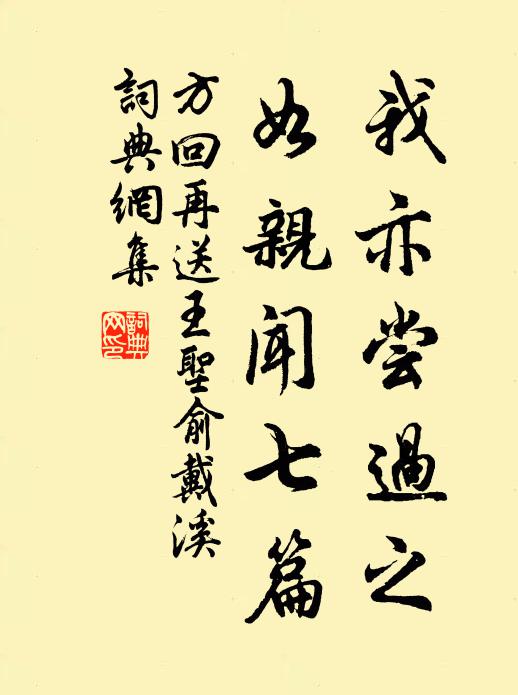 我亦尝過之
如親闻七篇
方回再送王聖俞戴溪
詞典網集
詞典网印